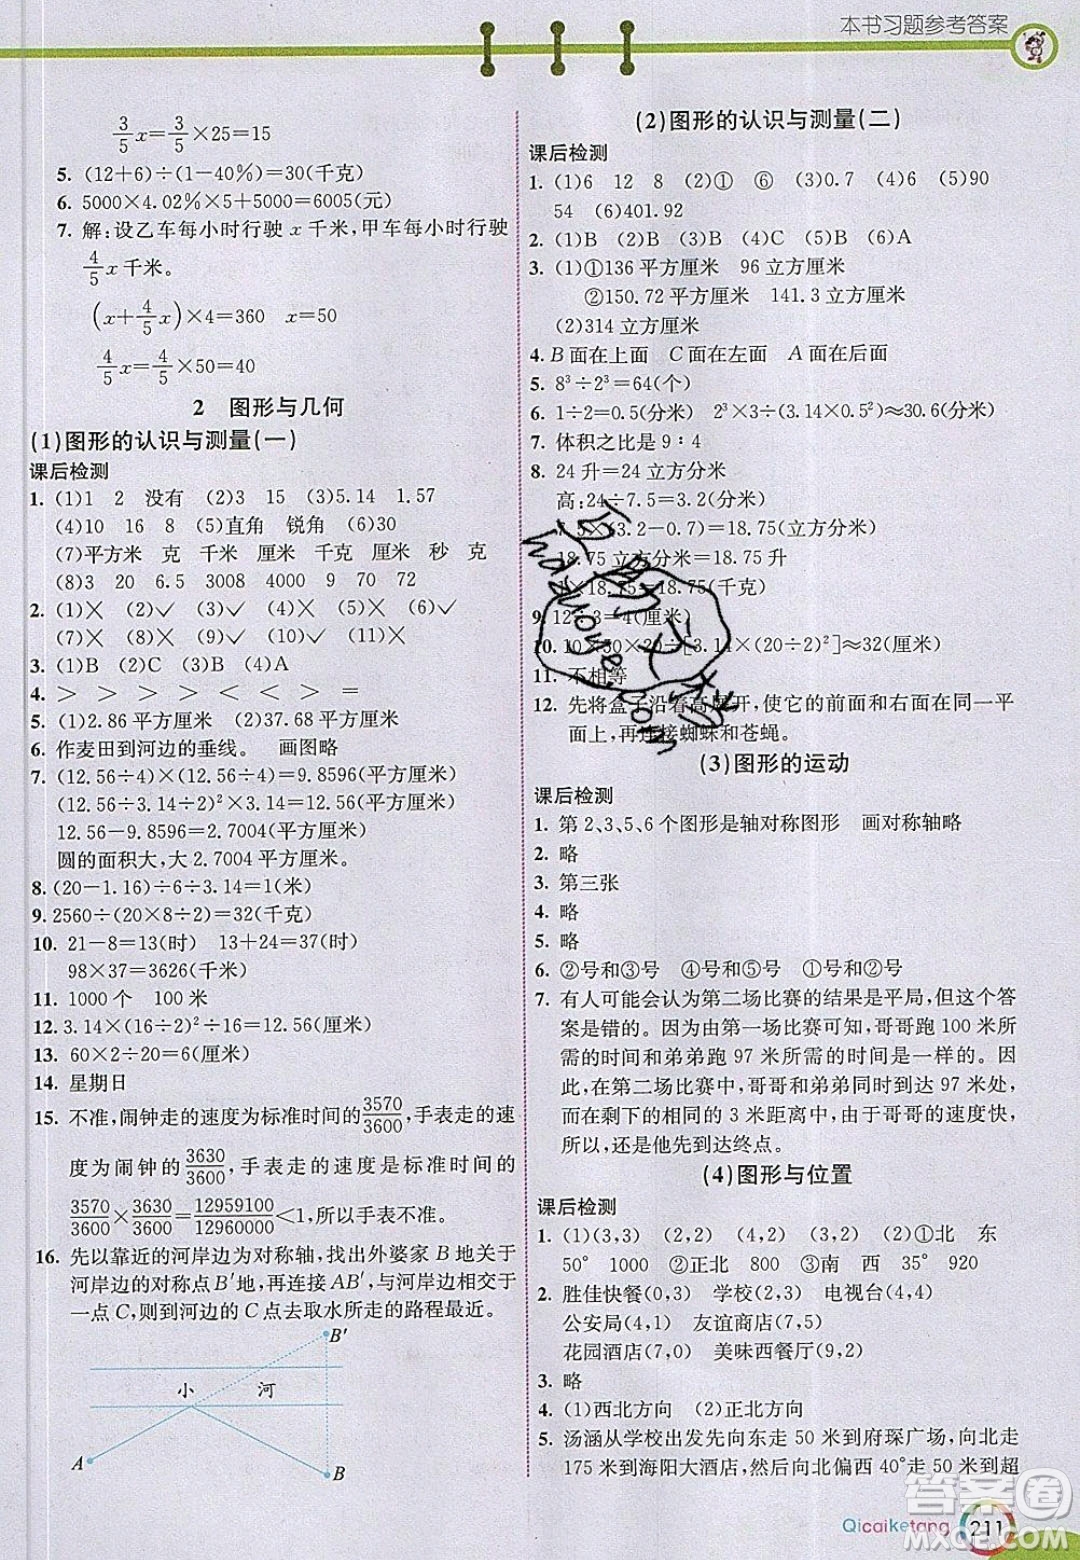 本书习题参考答案
3/5x=3/5×25=15
5. (12+6)÷(1-40%)=30(千克)
6. 5000×4.02%×5+5000=6005(元)
7. 解:设乙车每小时行驶 x 千米,甲车每小时行驶
4/5x千米。
(x+4/5x)×4=360 x=50
4/5x=4/5×50=40
2 图形与几何
(1)图形的认识与测量(一)
课后检测
1. (1)1 2 没有 (2)15 (3)5.14 1.57
(4)10 16 8 (5)直角 锐角 (6)40
(7)平方米 克 千米 厘米 千克 厘米 秒 克
(8)3 20 6.5 3008 4000 9 70 72
2. (1)× (2)√ (3)× (4)√ (5)× (6)√
(7)× (8)× (9)√ (10)√
3. (1)B (2)C (3)B (4)A
4. > > > > < < > =
5. (1)2.86 平方厘米 (2)37.68 平方厘米
6. 作麦田到河边的垂线。 画图略
7. (12.56÷4)×(12.56÷4)=9.8596(平方厘米)
(12.56÷3.14÷2)²×3.14=12.56(平方厘米)
12.56-9.8596=2.7004(平方厘米)
圆的面积大,大 2.7004 平方厘米。
8. (20-1.16)÷6÷3.14=1(米)
9. 2560÷(20×8÷2)=32(千克)
10. 21-8=13(时) 13+24=37(时)
98×37=3626(千米)
11. 1000 个 100 米
12. 3.14×(16÷2)²÷16=12.56(厘米)
13. 60×2÷20=6(厘米)
14. 星期日
15. 不准,闹钟走的速度为标准时间的3570/3600,手表走的速
度为闹钟的3630/3600,手表走的速度是标准时间的
3570/3600×3630/3600=12959100/12960000<1,所以手表不准。
16. 先以靠近的河岸边为对称轴,找出外婆家 B 地关于
河岸边的对称点B′地,再连接 AB′,与河岸边相交于
一点 C,则到河边的 C 点去取水所走的路程最近。
B′
小 河
A
B
(2)图形的认识与测量(二)
课后检测
1. (1)6 12 8 (2)① ⑥ (3)0.7 (4)6 (5)90
54 (6)401.92
2. (1)B (2)B (3)B (4)C (5)B (6)A
3. (1)①136 平方厘米 96 立方厘米
②150.72 平方厘米 141.3 立方厘米
(2)314 立方厘米
4. B 面在上面 C 面在左面 A 面在后面
5. 8³÷2³=64(个)
6. 1÷2=0.5(分米) 2³×3÷(3.14×0.5²)≈30.6(分米)
7. 体积之比是 9∶4
8. 24 升=24 立方分米
高:24÷7.5=3.2(分米)
7.5×(3.2-0.7)=18.75(立方分米)
18.75 立方分米=18.75 升
1×18.75=18.75(千克)
9. 12÷3=4(厘米)
10. 10×50×20÷[3.14×(20÷2)²]≈32(厘米)
11. 不相等
12. 先将盒子沿着高展开,使它的前面和右面在同一平
面上,再连接蜘蛛和苍蝇。
(3)图形的运动
课后检测
1. 第 2、3、5、6 个图形是轴对称图形 画对称轴略
2. 略
3. 第三张
4. 略
5. 略
6. ②号和③号 ④号和⑤号 ①号和⑥号
7. 有人可能会认为第二场比赛的结果是平局,但这个答
案是错的。因为由第一场比赛可知,哥哥跑 100 米所
需的时间和弟弟跑 97 米所需的时间是一样的。因
此,在第二场比赛中,哥哥和弟弟同时到达 97 米处,
而在剩下的相同的 3 米距离中,由于哥哥的速度快,
所以,还是他先到达终点。
(4)图形与位置
课后检测
1. (1)(3,3) (2,2) (4,2) (3,2) (2)①北 东
50° 1000 ②正北 800 ③南 西 35° 920
2. 胜佳快餐(0,4) 学校(2,4) 电视台(4,4)
公安局(4,1) 友谊商店(7,5)
花园酒店(7,4) 美味西餐厅(9,2)
3. 略
4. (1)西北方向 (2)正北方向
5. 汤涵从学校出发先向东走 50 米到府琛广场,向北走
175 米到海阳大酒店,然后向北偏西 40°走 50 米到超
Qicaiketang 211
答案圈
MXQE.COM